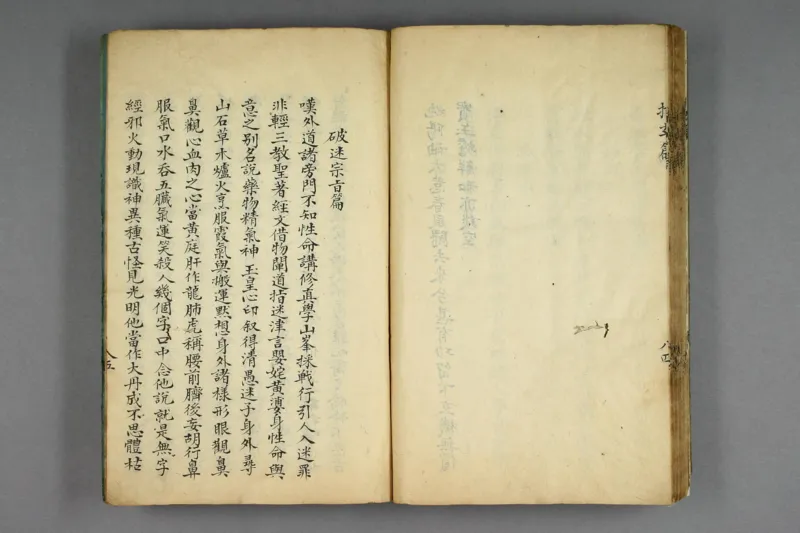 破迷宗旨篇
嘆外道諸旁門不知性命講修真學山峯採戰行引人入迷罪
非輕三教聖著經文借物闡道指迷津言嬰姹黃婆身性命與
意之別名說藥物精氣神玉皇心印叙得清愚迷子身外尋
山石草木爐火烹服霞氣與搬運默想心身外諸樣形眼觀鼻
鼻觀心血肉之心當黃庭肝作龍肺虎稱腰前臍後妄胡行鼻
服氣口水吞五臟氣運笑殺人幾個字口中含他說就是無字
經邪火動現識神異種古怪見光明他當作大丹成不思體枯
八五
指玄篇
八四